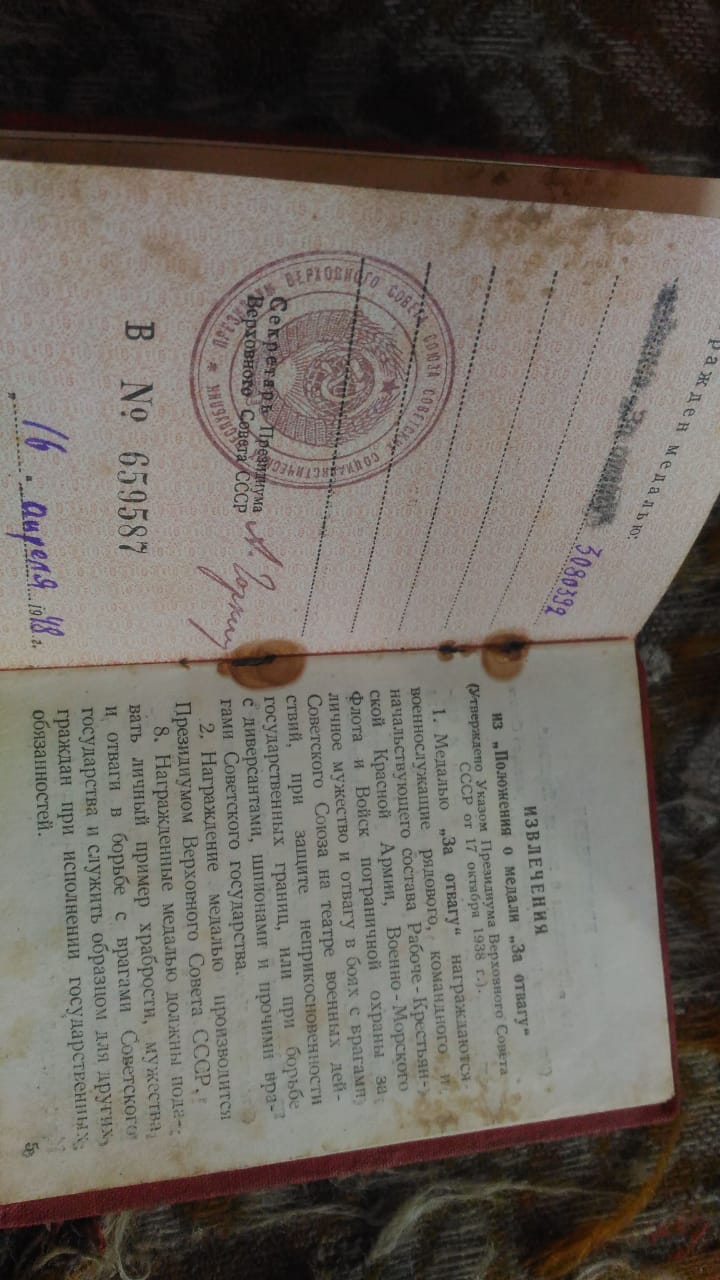 ражден медалью:
3080392
ПРЕЗИДИУМ ВЕРХОВНОГО СОВЕТА СОЮЗА СОВЕТСКИХ СОЦИАЛИСТИЧЕСКИХ РЕСПУБЛИК
Секретарь Президиума
Верховного Совета СССР
В № 659587
„16 " апреля 1948 г.
ИЗВЛЕЧЕНИЯ
из „Положения о медали „За отвагу“
(Утверждено Указом Президиума Верховного Совета
СССР от 17 октября 1938 г.).
1. Медалью „За отвагу“ награждаются
военнослужащие рядового, командного и
начальствующего состава Рабоче-Крестьян-
ской Красной Армии, Военно-Морского
Флота и Войск пограничной охраны за
личное мужество и отвагу в боях с врагами
Советского Союза на театре военных дей-
ствий, при защите неприкосновенности
государственных границ, или при борьбе
с диверсантами, шпионами и прочими вра-
гами Советского государства.
2. Награждение медалью производится
Президиумом Верховного Совета СССР,
8. Награжденные медалью должны пода-
вать личный пример храбрости, мужества
и отваги в борьбе с врагами Советского
государства и служить образцом для других
граждан при исполнении государственных
обязанностей.
5